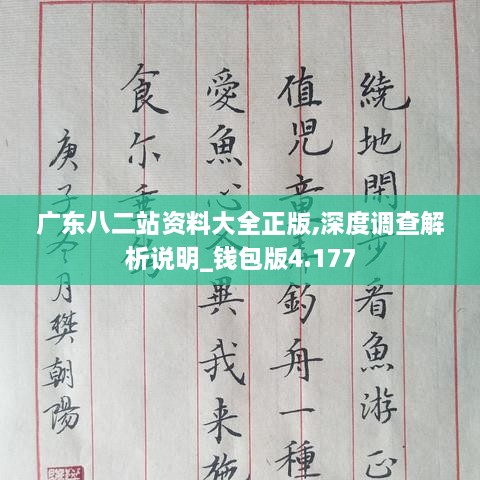 繞地閑步看魚游正
值兒童弄釣舟一種
愛魚心各異我來施
食尔垂鈎
庚子冬月樊朝陽
广东八二站资料大全正版,深度调查解
析说明_钱包版4.177